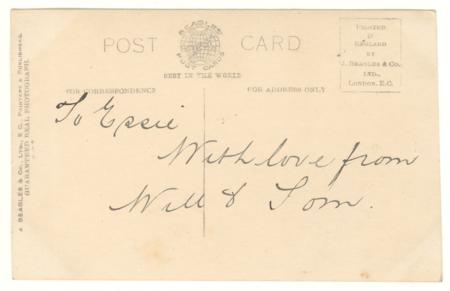 BEAGLES
POST CARDS
POST CARD
BEST IN THE WORLD
PRINTED
IN
ENGLAND
BY
J. BEAGLES & CO.
LTD.,
LONDON, E.C.
FOR CORRESPONDENCE
FOR ADDRESS ONLY
To Essie
With love from
Will & Tom.
J. BEAGLES & CO., LTD., E.C., PRINTERS & PUBLISHERS.
GUARANTEED REAL PHOTOGRAPH.